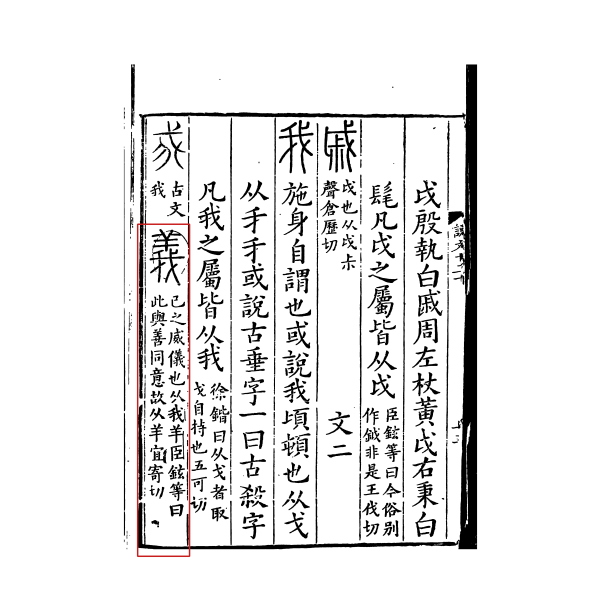 戉殷執白戚周左杖黃戉右秉白
髦凡戉之屬皆从戉臣鉉等曰今俗别作鉞非是王伐切
戚戉也从戉尗聲倉歷切 文二
我施身自謂也或說我頃頓也从戈
从手手或說古垂字一曰古殺字
凡我之屬皆从我徐鍇曰从戈者取戈自持也五可切
古文我義己之威儀也从我羊臣鉉等曰此與善同意故从羊宜寄切